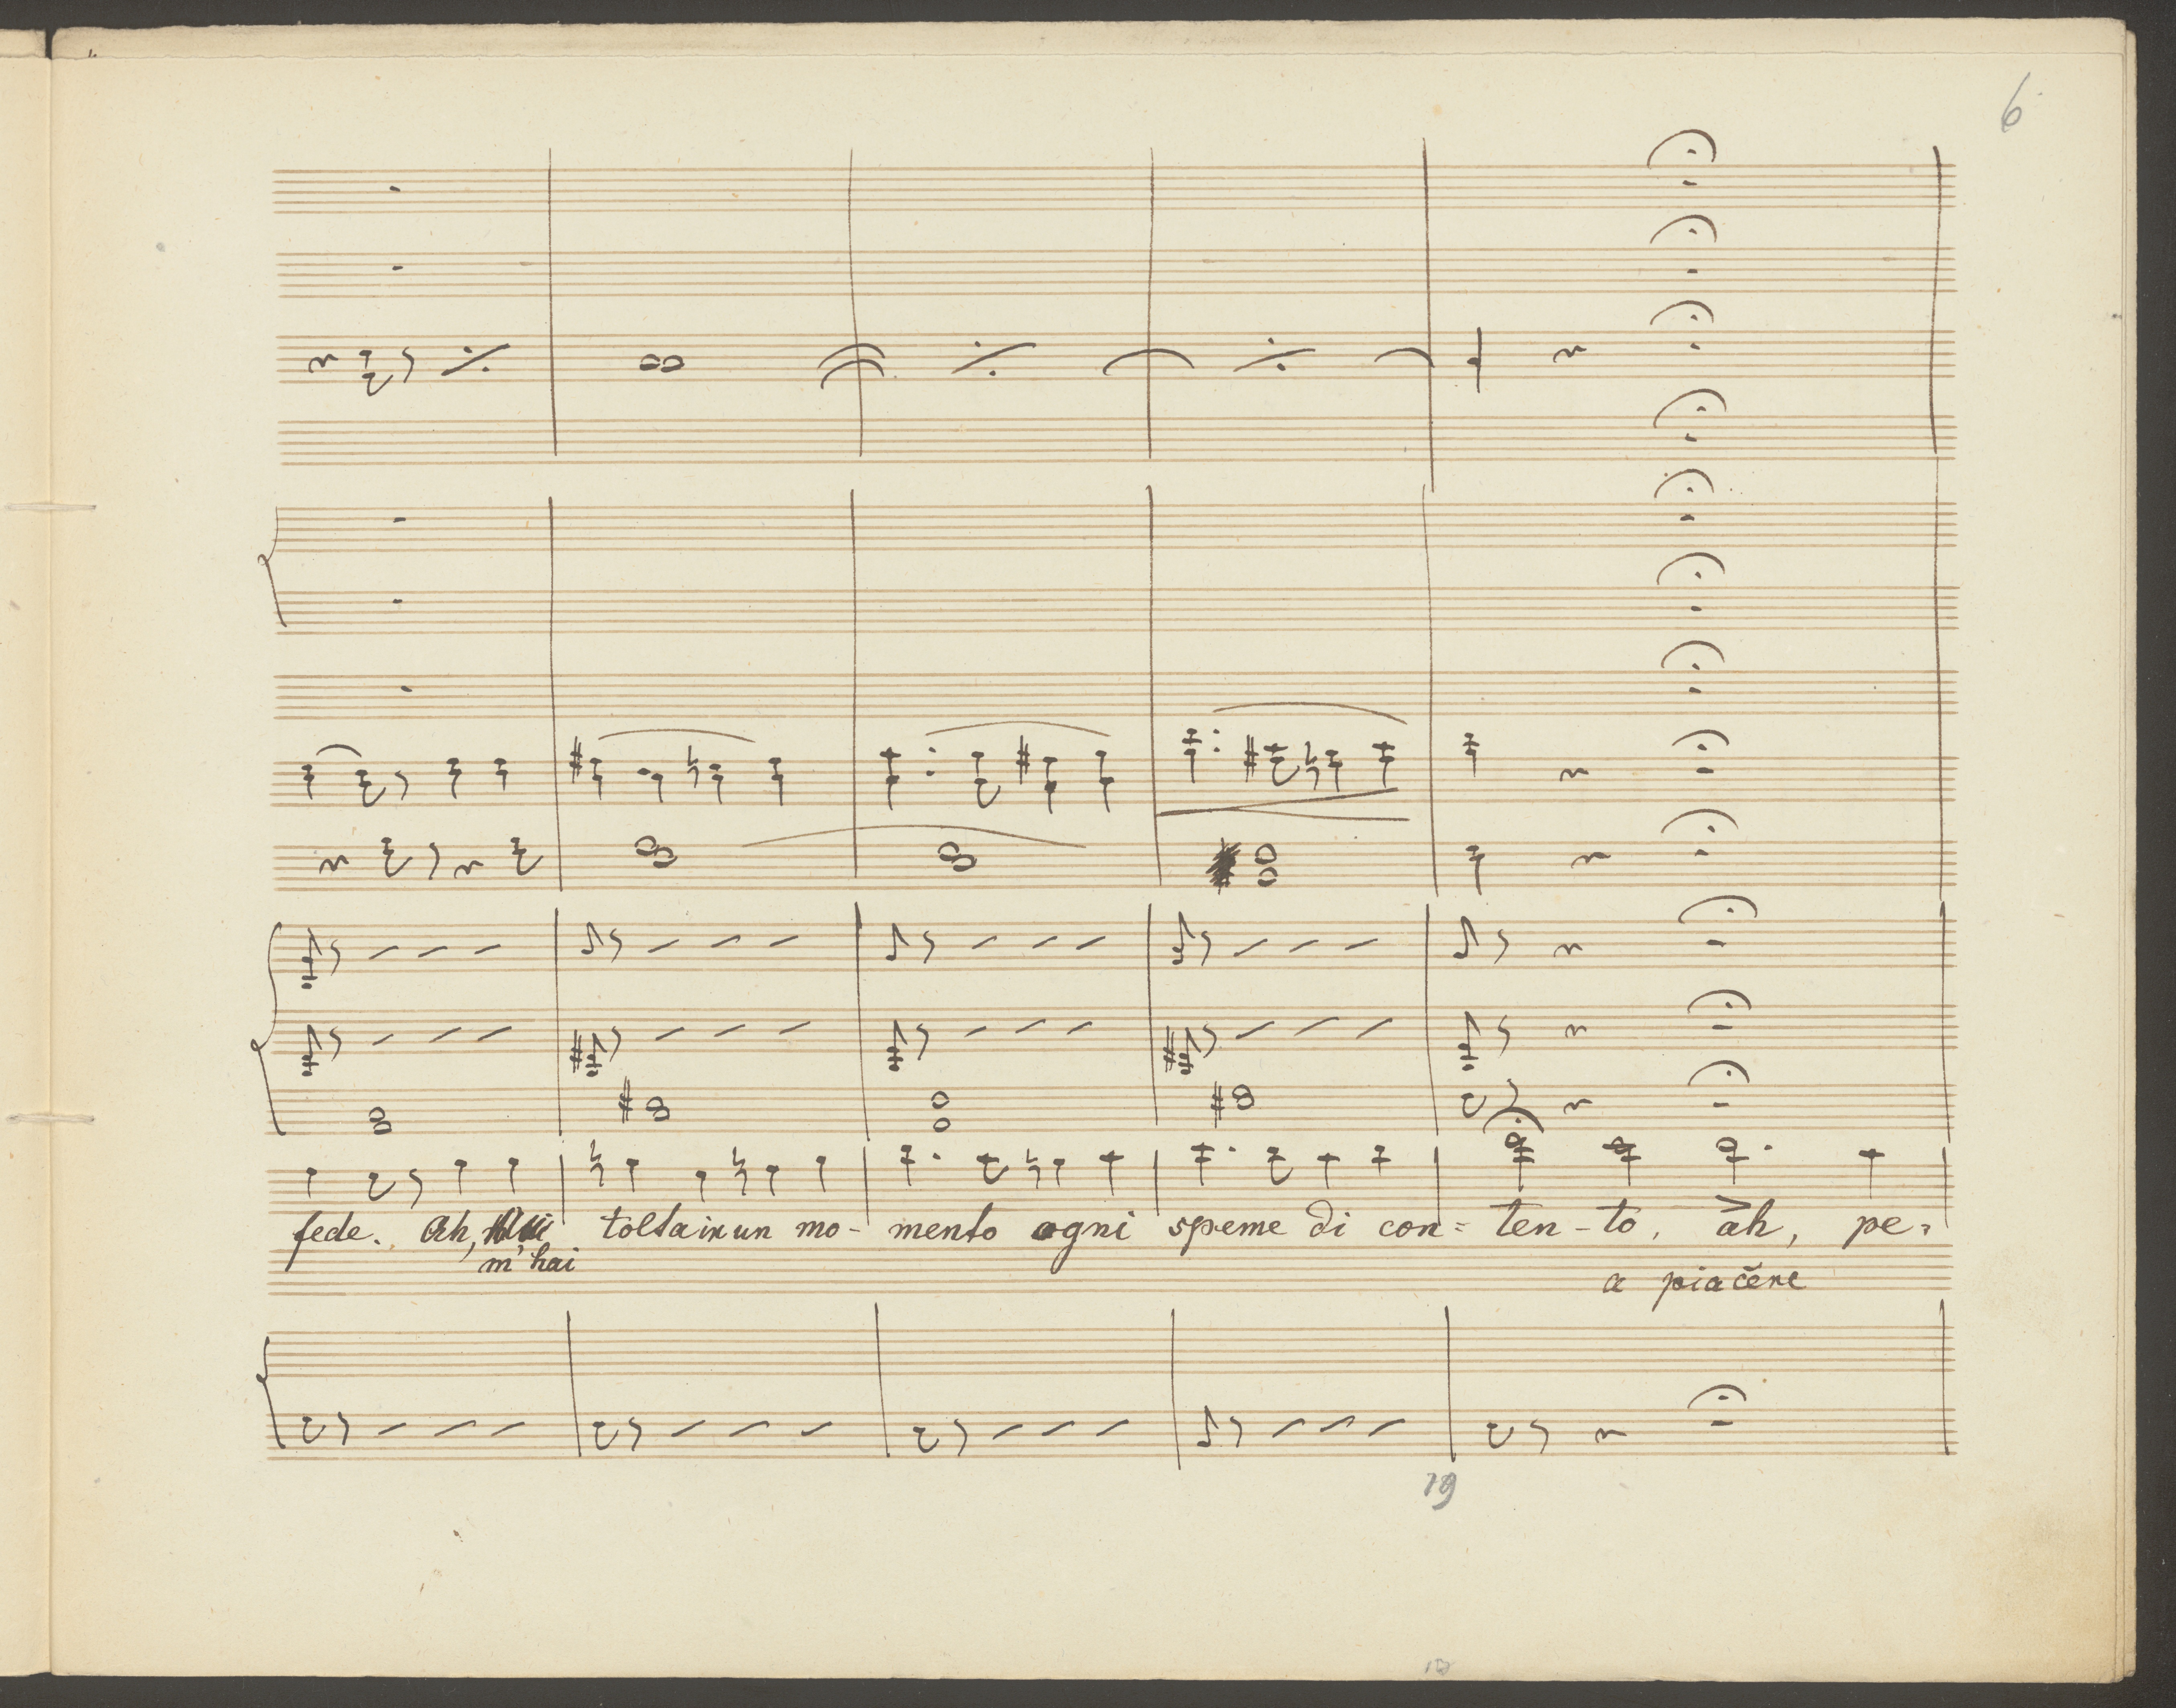 6
fede. Ah, tolta in un mo- mento ogni speme di con= ten-to, ah, pe=
m'hai
a piacĕre
19